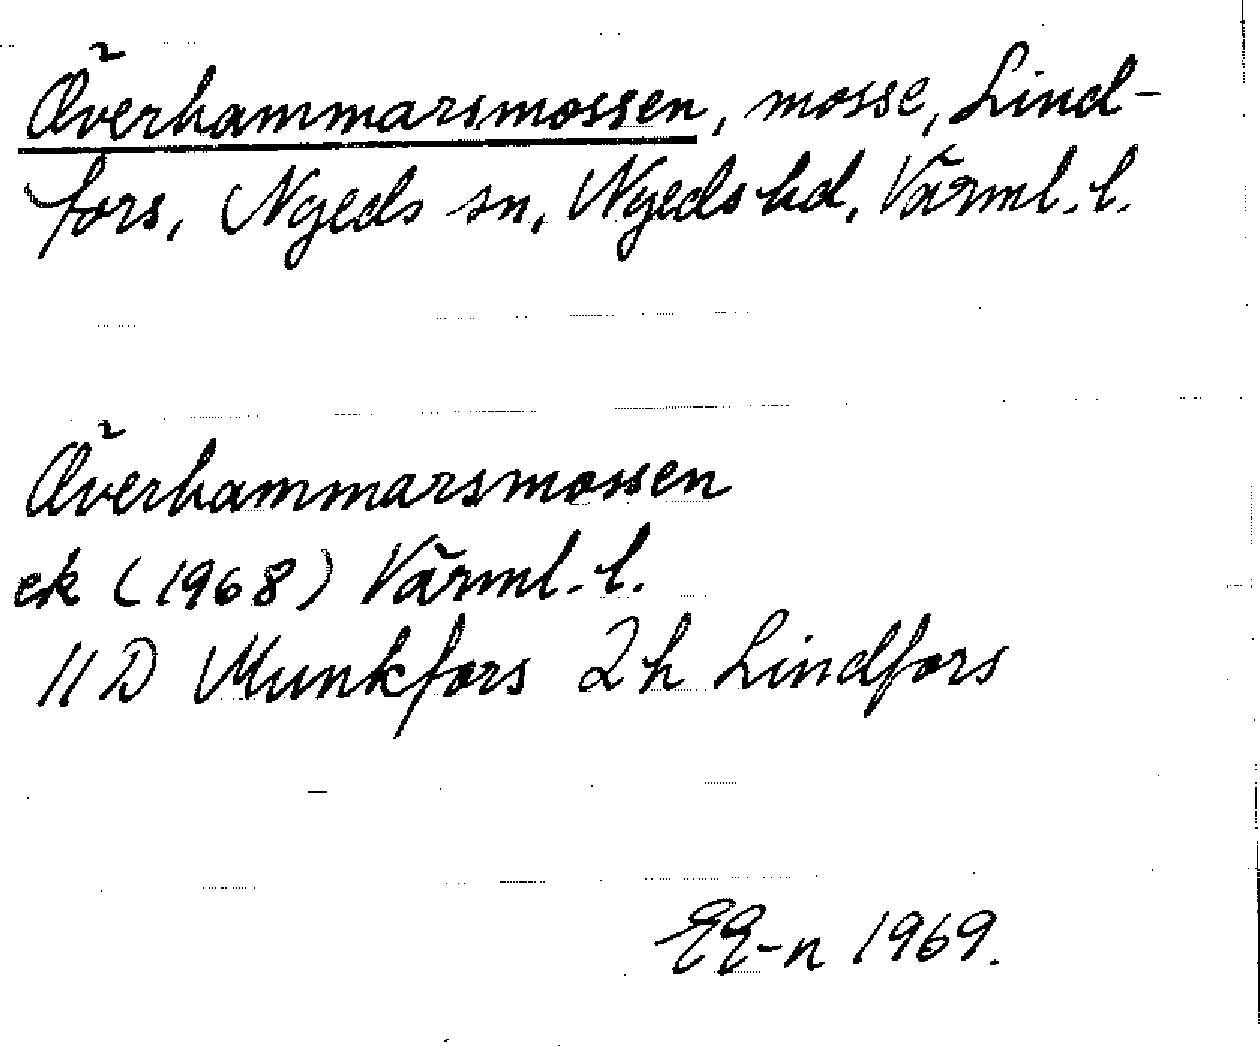 Överhammarsmossen, mosse, Lind-
fors, Nyeds sn, Nyeds hd, Värml. l.
Överhammarsmossen
ek (1968) Värml. l.
11 D Munkfors 2h Lindfors
EE-n 1969.